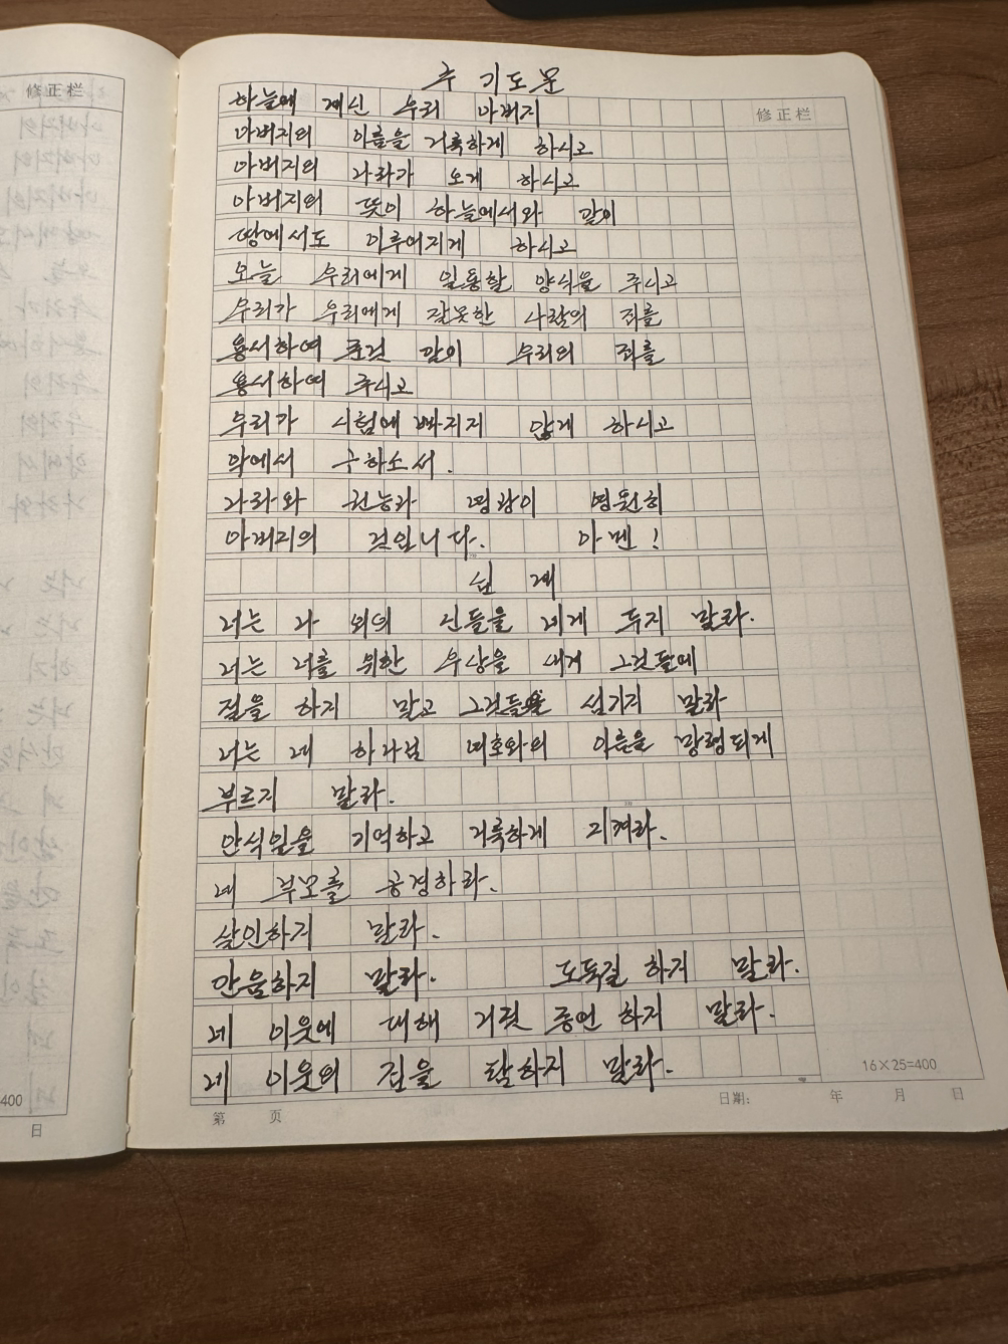 修正栏
주 기도문
修正栏
하늘에 계신 우리 아버지
아버지의 이름을 거룩하게 하시고
아버지의 나라가 오게 하시고
아버지의 뜻이 하늘에서와 같이
땅에서도 이루어지게 하시고
오늘 우리에게 일용할 양식을 주시고
우리가 우리에게 잘못한 사람의 죄를
용서하여 준것 같이 우리의 죄를
용서하여 주시고
우리가 시험에 빠지지 않게 하시고
악에서 구하소서.
나라와 권능과 영광이 영원히
아버지의 것입니다. 아멘!
십 계
너는 나 외의 신들을 네게 두지 말라.
너는 너를 위한 우상을 새겨 그것들에
절을 하지 말고 그것들을 섬기지 말라
너는 네 하나님 여호와의 이름을 망령되게
부르지 말라.
안식일을 기억하고 거룩하게 지켜라.
네 부모를 공경하라.
살인하지 말라.
간음하지 말라. 도둑질 하지 말라.
네 이웃에 대해 거짓 증언 하지 말라.
네 이웃의 집을 탐하지 말라.
16×25=400
第 页 日期: 年 月 日
400
日